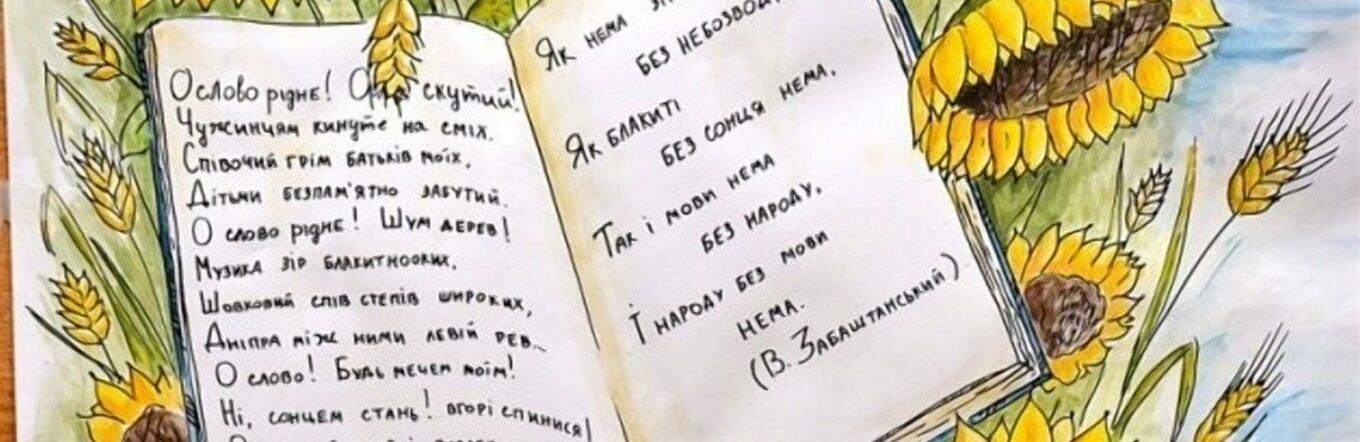 О слово рідне! Орле скутий!
Чужинцям кинуте на сміх.
Співочий грім батьків моїх,
Дітьми безпам'ятно забутий.
О слово рідне! Шум дерев!
Музика зір блакитнооких,
Шовковий спів степів широких,
Дніпра між ними левій рев...
О слово! Будь мечем моїм!
Ні, сонцем стань! вгорі спинися!
Як нема
без небозводу,
Як блакиті
без сонця нема,
Так і мови нема
без народу,
І народу без мови
нема.
(В. Забаштанський)